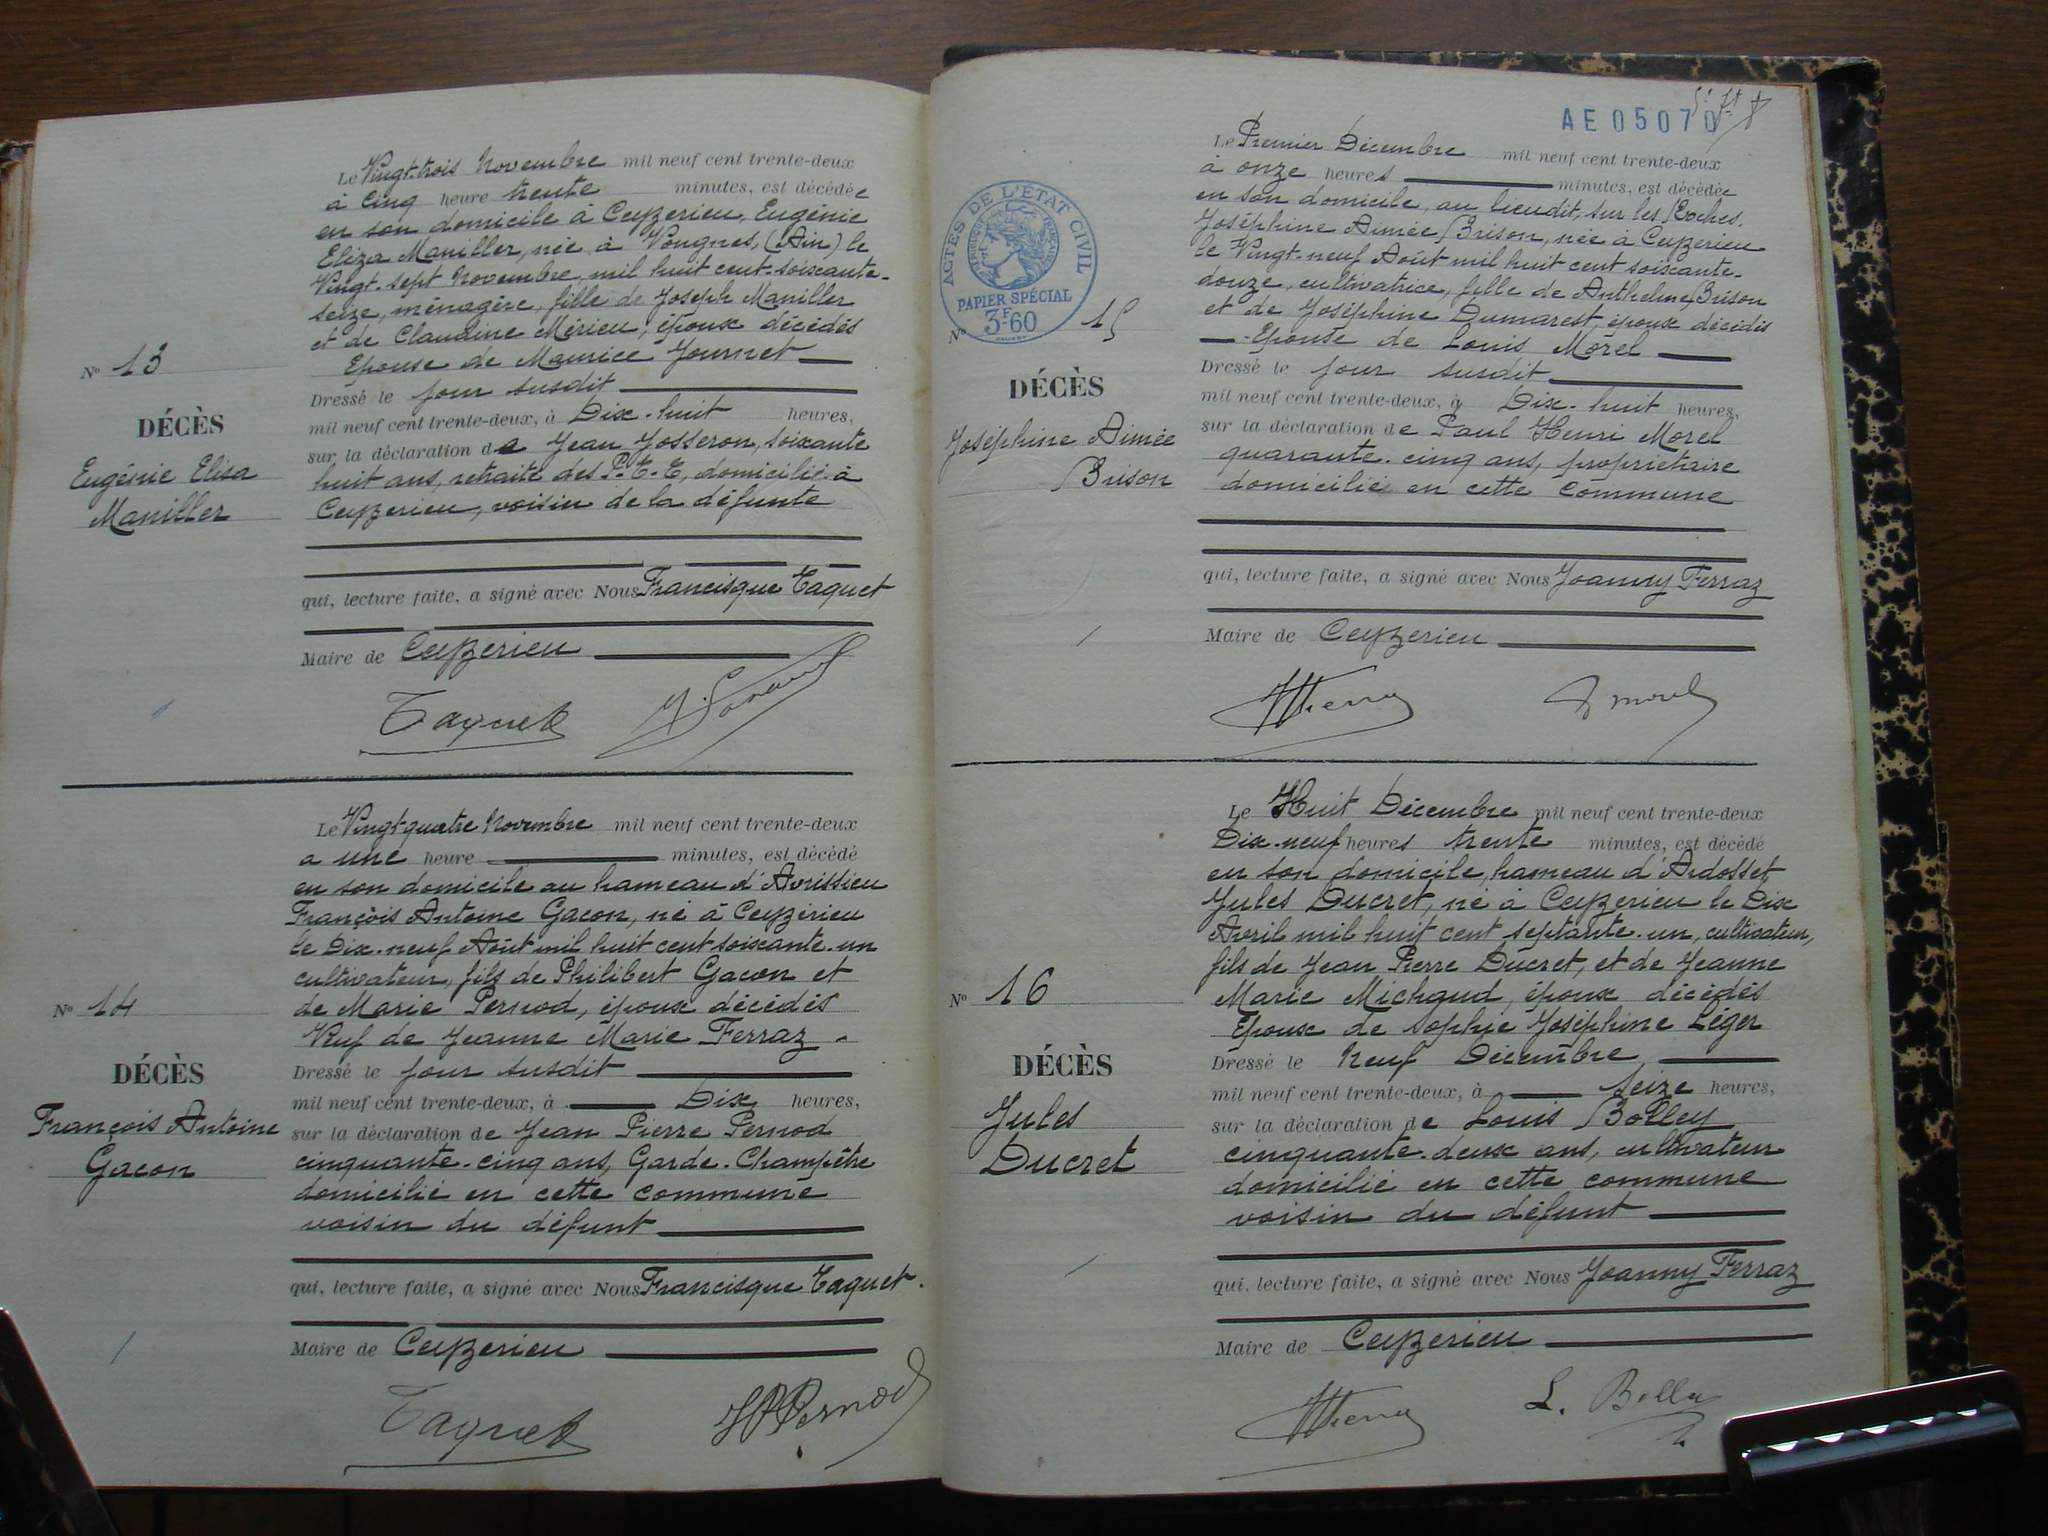 Le Vingt-trois Novembre mil neuf cent trente-deux
à Cinq heure trente minutes, est décédée
en son domicile à Ceyzerieu, Eugénie
Eliza Maniller, née à Vongnes, (Ain) le
Vingt-sept Novembre, mil huit cent soixante-
seize, ménagère, fille de Joseph Maniller
et de Claudine Mérieu, époux décédés
Epouse de Maurice Journet
Nº 13
Dressé le jour susdit
mil neuf cent trente-deux, à Dix-huit heures,
DÉCÈS
sur la déclaration de Jean Josseron, soixante
Eugénie Elisa
huit ans, retraité des P.T.T, domicilié à
Maniller
Ceyzerieu, voisin de la défunte
qui, lecture faite, a signé avec Nous Francisque Taquet
Maire de Ceyzerieu
Taquet
Le Vingt-quatre Novembre mil neuf cent trente-deux
a une heure minutes, est décédé
en son domicile au hameau d'Avrissieu
François Antoine Gacon, né à Ceyzérieu
le Dix-neuf Août mil huit cent soixante-un
cultivateur, fils de Philibert Gacon et
Nº 14
de Marie Pernod, époux décédés
Veuf de Jeanne Marie Ferraz.
DÉCÈS
Dressé le jour susdit
mil neuf cent trente-deux, à Dix heures,
François Antoine
sur la déclaration de Jean Pierre Pernod
Gacon
cinquante-cinq ans, Garde-Champêtre
domicilié en cette commune
voisin du défunt
qui, lecture faite, a signé avec Nous Francisque Taquet.
Maire de Ceyzerieu
Taquet JPPernod
AE 05070
ACTES DE L'ÉTAT CIVIL
RÉPUBLIQUE FRANÇAISE
PAPIER SPÉCIAL
3F60
Le Premier Décembre mil neuf cent trente-deux
à onze heures minutes, est décédée
en son domicile, au lieudit, sur les Roches,
Joséphine Aimée Brison, née à Ceyzerieu
le Vingt-neuf Août mil huit cent soixante-
douze, cultivatrice, fille de Anthelme Brison
et de Joséphine Dumarest, époux décédés
Nº 15
Epouse de Louis Morel
DÉCÈS
Dressé le jour susdit
mil neuf cent trente-deux, à Dix-huit heures,
Joséphine Aimée
sur la déclaration de Paul Henri Morel
Brison
quarante-cinq ans, propriétaire
domicilié en cette Commune
qui, lecture faite, a signé avec Nous Joanny Ferraz
Maire de Ceyzerieu
Le Huit Décembre mil neuf cent trente-deux
Dix-neuf heures trente minutes, est décédé
en son domicile, hameau d'Ardosset
Jules Ducret, né à Ceyzerieu le Dix
Avril mil huit cent septante-un, cultivateur,
fils de Jean Pierre Ducret, et de Jeanne
Nº 16
Marie Michaud, époux décédés
Epoux de Sophie Joséphine Léger
DÉCÈS
Dressé le Neuf Décembre
mil neuf cent trente-deux, à seize heures,
Jules
sur la déclaration de Louis Bolley
Ducret
cinquante-deux ans, cultivateur
domicilié en cette commune
voisin du défunt
qui, lecture faite, a signé avec Nous Joanny Ferraz
Maire de Ceyzerieu
L. Bolley